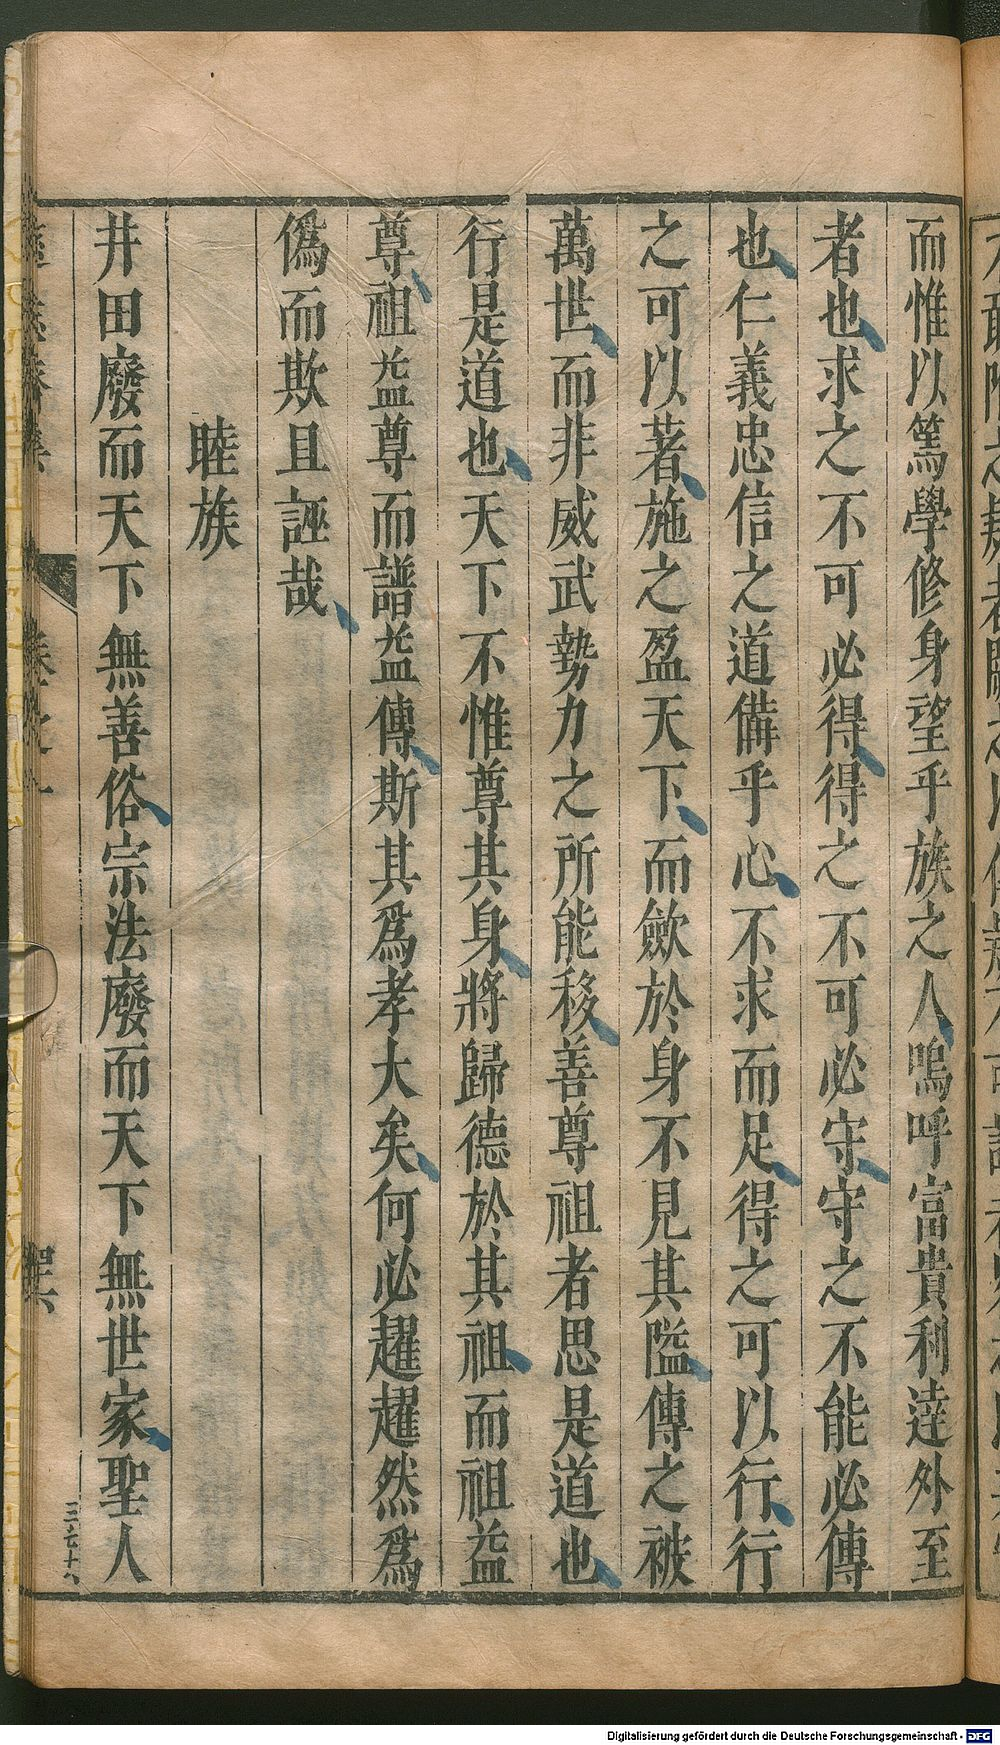 而惟以篤學修身望乎族之人嗚呼富貴利達外至
者也求之不可必得得之不可必守守之不能必傳
也仁義忠信之道備乎心不求而足得之可以行行
之可以著施之盈天下而歛於身不見其隘傳之被
萬世而非威武勢力之所能移善尊祖者思是道也
行是道也天下不惟尊其身將歸德於其祖而祖益
尊祖益尊而譜益傳斯其爲孝大矣何必趯趯然爲
僞而欺且誣哉
睦族
井田廢而天下無善俗宗法廢而天下無世家聖人
三七十八
Digitalisierung gefördert durch die Deutsche Forschungsgemeinschaft - DFG